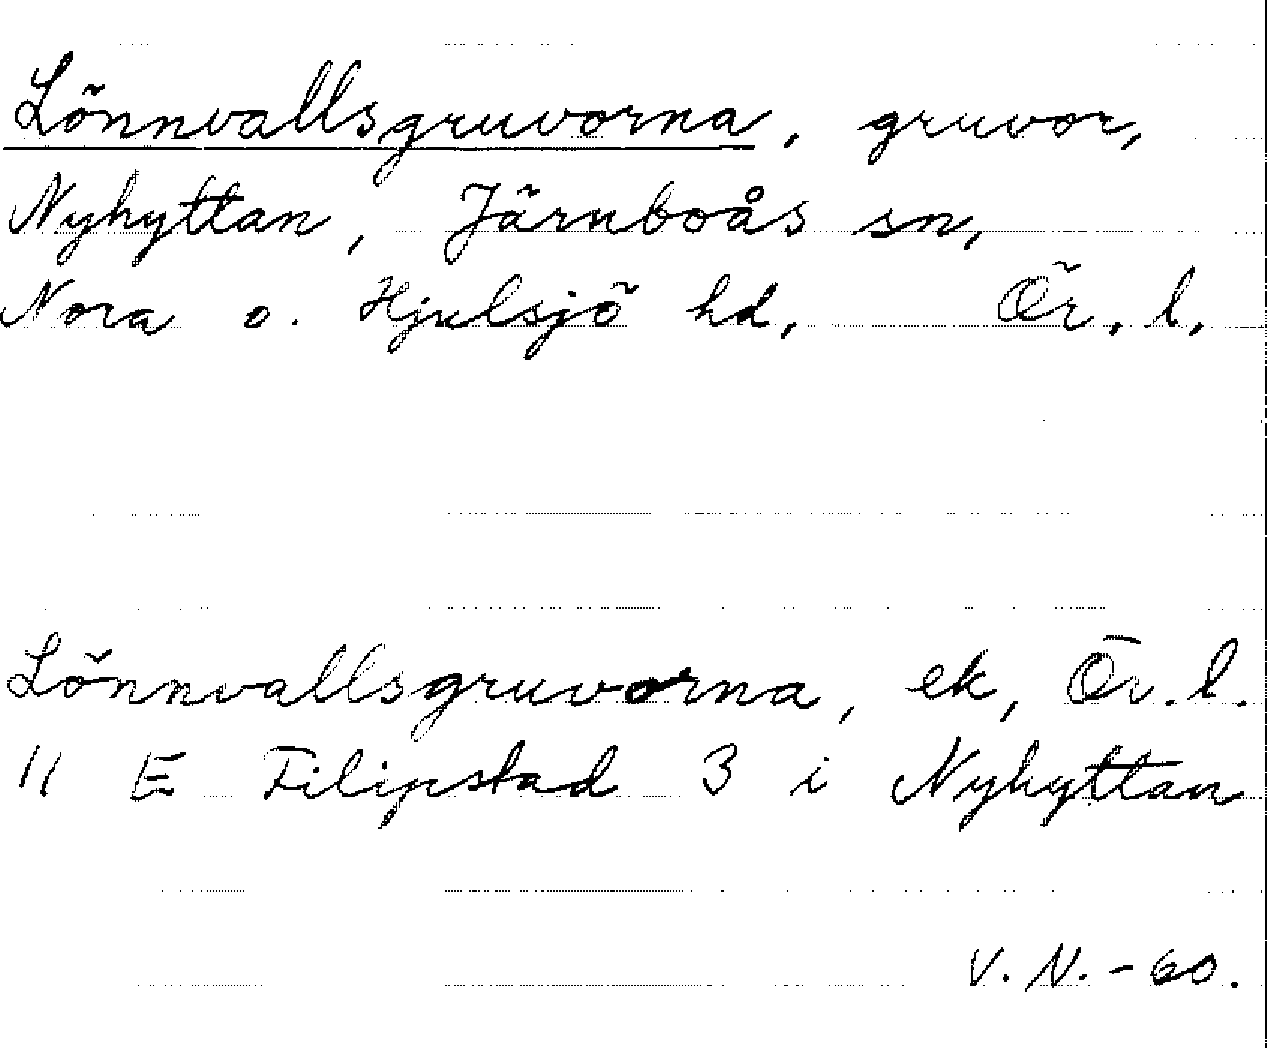 Lönnvallsgruvorna, gruvor,
Nyhyttan, Järnboås sn,
Nora o. Hjulsjö hd, Ör. l.
Lönnvallsgruvorna, ek, Ör. l.
11 E Filipstad 3 i Nyhyttan
V. N. -60.